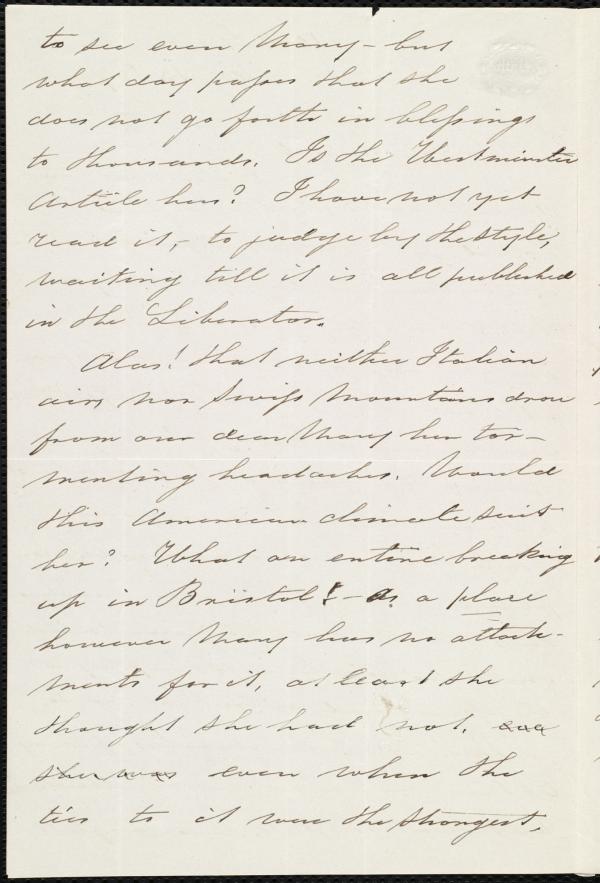 to see even Mary – but
what day passes that she
does not go forth in blessings
to thousands. Is the Westminster
Article hers? I have not yet
read it, – to judge by the style,
waiting till it is all published
in the Liberator.
Alas! that neither Italian
airs nor Swiss Mountains drove
from our dear Mary her tor-
menting headaches. Would
this American climate suit
her? What an entire breaking
up in Bristol! – As a place
however Mary has no attach-
ments for it, at least she
thought she had not, eve
she was even when the
ties to it were the strongest,